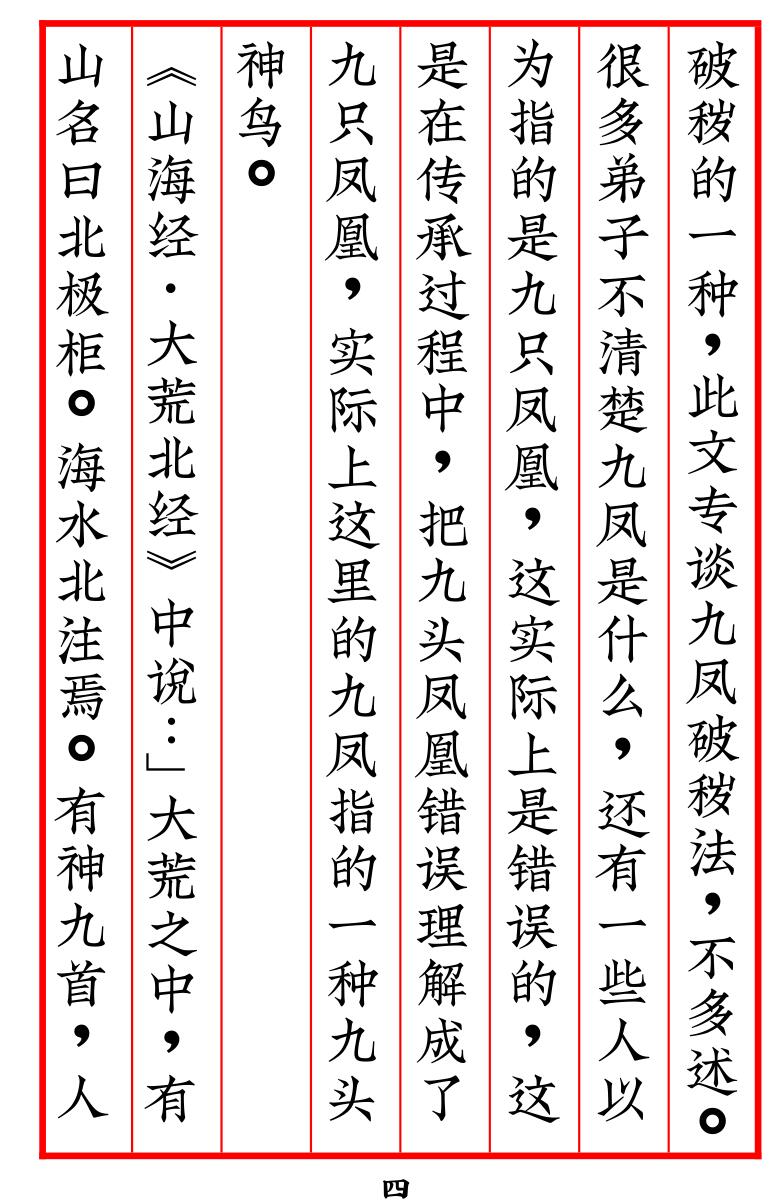 破秽的一种，此文专谈九凤破秽法，不多述。
很多弟子不清楚九凤是什么，还有一些人以
为指的是九只凤凰，这实际上是错误的，这
是在传承过程中，把九头凤凰错误理解成了
九只凤凰，实际上这里的九凤指的一种九头
神鸟。
《山海经·大荒北经》中说：」大荒之中，有
山名曰北极柜。海水北注焉。有神九首，人
四